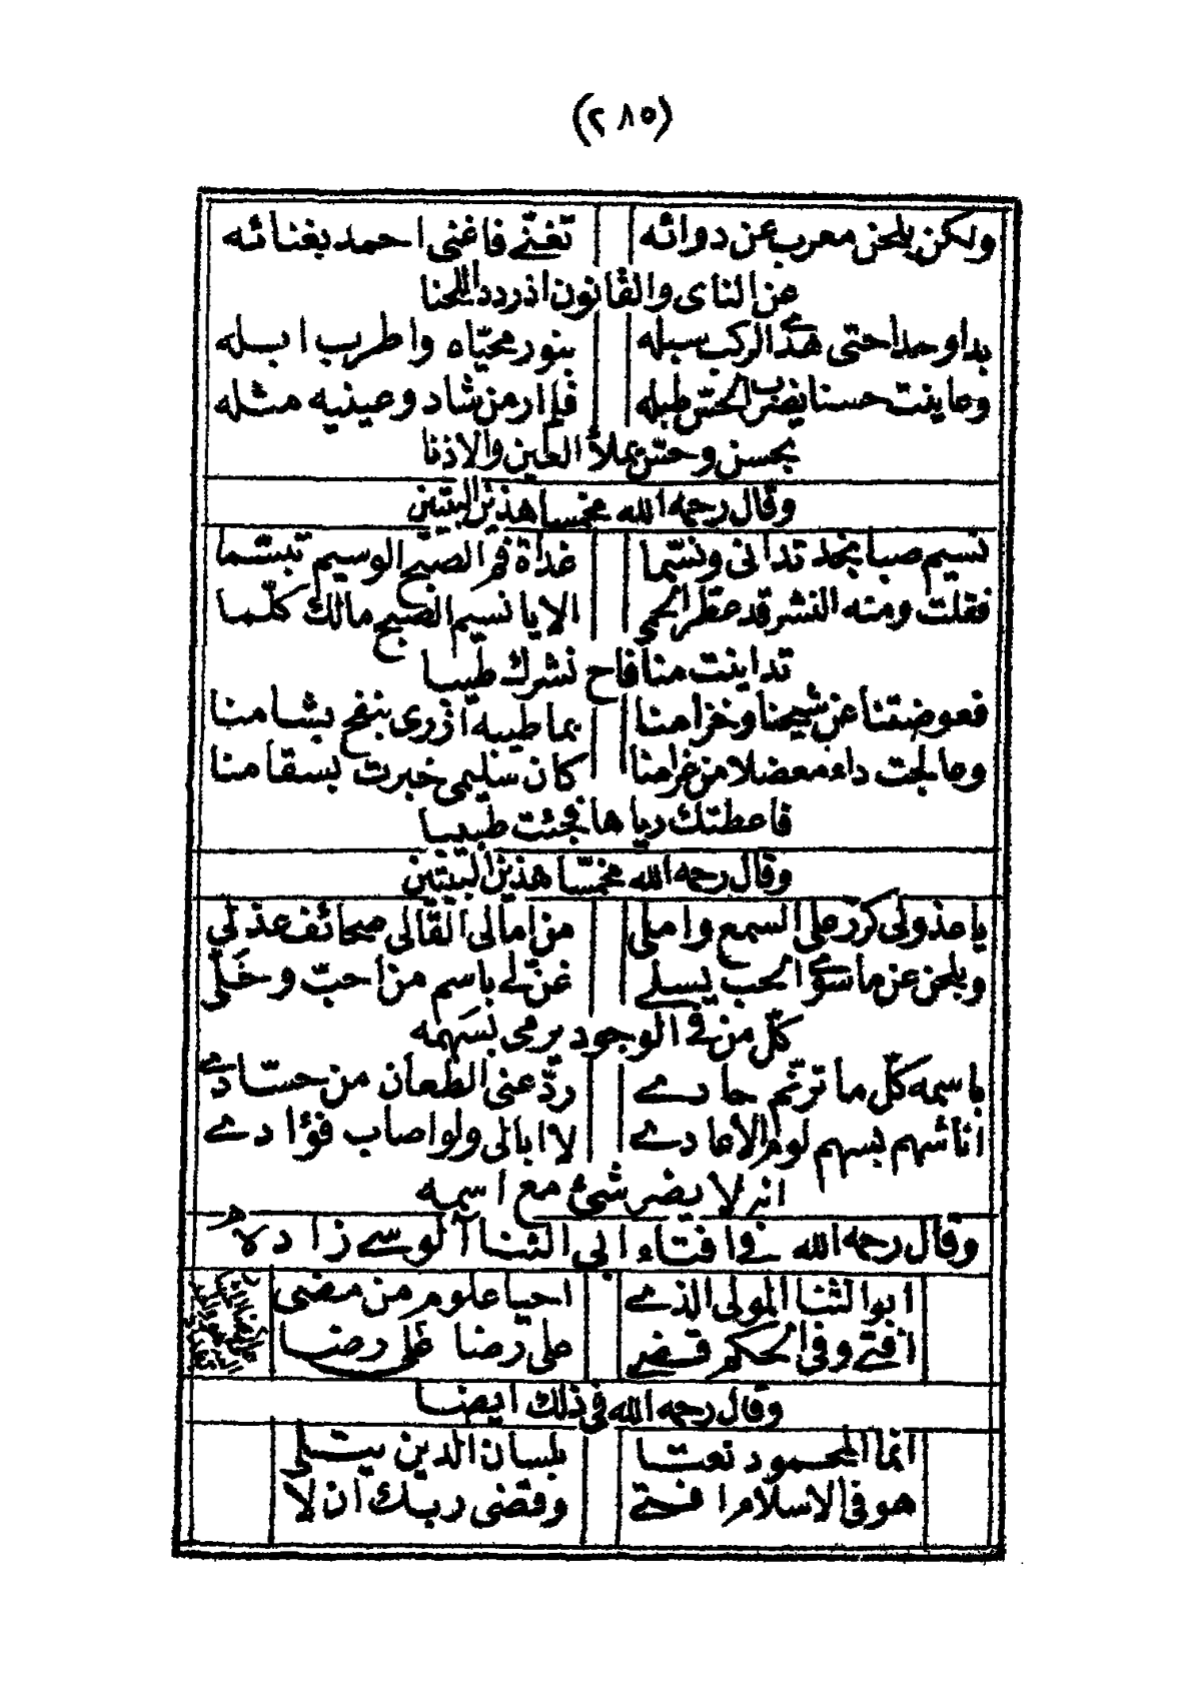 (٢٨٥)
ولكن بلحن معرب عن دوائه تغنّى فاغنى احمد بغنائه
عن الناى والقانون اذ ردد اللحنا
بدا وحدا حتى هدى الركب سبله بنور محيّاه واطرب ابله
وعاينت حسنا يضرب الحسّ طبله فلم ار من شاد وعينيه مثله
بحسن وحسّ يملأ العين والاذنا
وقال رحمه الله مخمسا هذين البيتين
نسيم صبا نجد تدانى ونسّما غداة فم الصبح الوسيم تبسّما
فقلت ومنه النشر قد عطّر الحمى الا يا نسيم الصبح مالك كلّما
تداينت منا فاح نشرك طيبا
فعوضتنا عن شيحنا وخزامنا بما طيبه أزرى بنفح بشامنا
وعالجت داء معضلا من غرامنا كان سليمى خبرت بسقامنا
فاعطتك رياها فجئت طبيبا
وقال رحمه الله مخمّسا هذين البيتين
يا عذولى كرّر على السمع واملى من امالى القالى صحائف عذلي
وبلحن عن ما سوى الحب يسلي غنّ لي باسم من احبّ وخَلّي
كلّ من في الوجود يرمى بسَهمه
باسمه كلّ ما ترنّم حادي ردّ عنى الطعان من حسّادي
انا شهم بسهم لوم الأعادي لا ابالى ولو اصاب فؤادي
انه لا يضر شئ مع اسمه
وقال رحمه الله في افتاء ابى الثنا آلوسي زاده
ابو الثنا المولى الذي احيا علوم من مضى
افتى وفى الحكم قضى على رضا على رضا
وقال رحمه الله في ذلك ايضا
انما المحمود نعتا بلسان الدين يتلى
هو في الاسلام افتى وقضى ربك ان لا